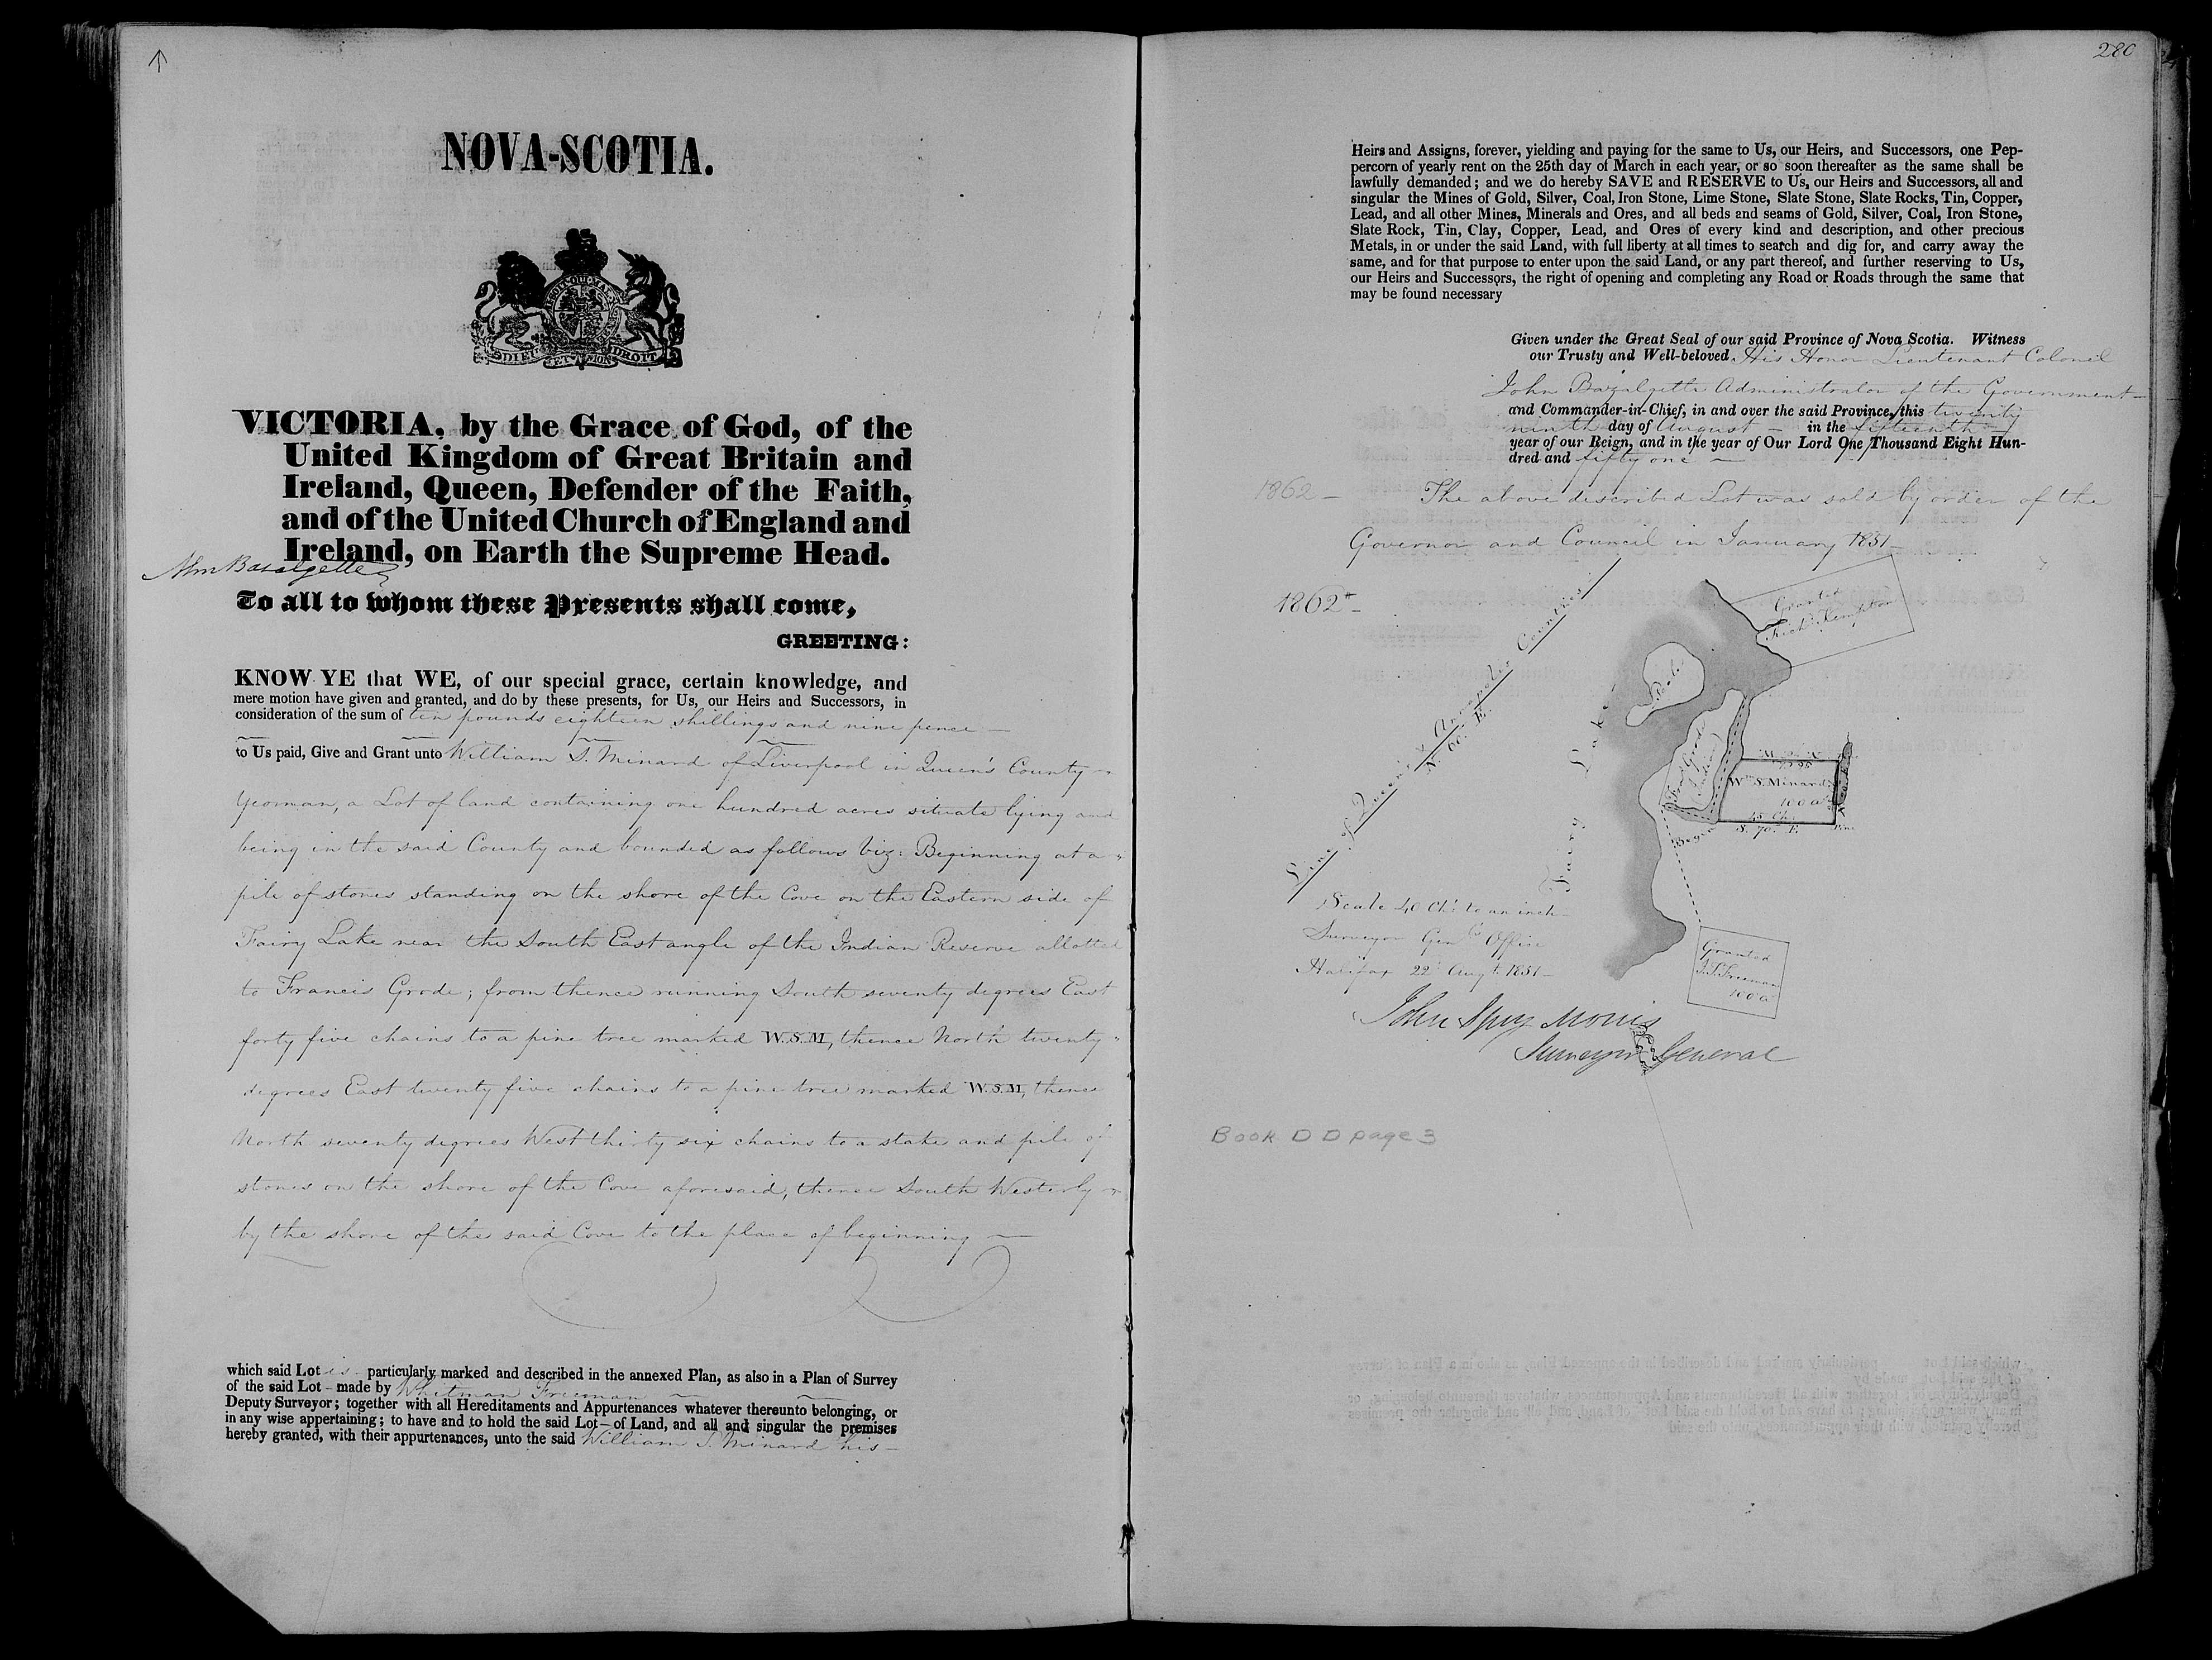 NOVA-SCOTIA.
DIEU ET MON DROIT
VICTORIA, by the Grace of God, of the
United Kingdom of Great Britain and
Ireland, Queen, Defender of the Faith,
and of the United Church of England and
Ireland, on Earth the Supreme Head.
Bazalgette
To all to whom these Presents shall come,
GREETING:
KNOW YE that WE, of our special grace, certain knowledge, and
mere motion have given and granted, and do by these presents, for Us, our Heirs and Successors, in
consideration of the sum of ten pounds eighteen shillings and nine pence
to Us paid, Give and Grant unto William S. Minard of Liverpool in Queen's County
Yeoman, a Lot of land containing one hundred acres situate lying and
being in the said County and bounded as follows viz: Beginning at a
pile of stones standing on the shore of the Cove on the Eastern side of
Fairy Lake near the South East angle of the Indian Reserve allotted
to Francis Grode; from thence running South seventy degrees East
forty five chains to a pine tree marked W.S.M, thence North twenty
degrees East twenty five chains to a pine tree marked W.S.M, thence
North seventy degrees West thirty six chains to a stake and pile of
stones on the shore of the Cove aforesaid, thence South Westerly
by the shore of the said Cove to the place of beginning
which said Lot is particularly marked and described in the annexed Plan, as also in a Plan of Survey
of the said Lot - made by Whitman Freeman
Deputy Surveyor; together with all Hereditaments and Appurtenances whatever thereunto belonging, or
in any wise appertaining; to have and to hold the said Lot - of Land, and all and singular the premises
hereby granted, with their appurtenances, unto the said William S. Minard his
280
Heirs and Assigns, forever, yielding and paying for the same to Us, our Heirs, and Successors, one Pep-
percorn of yearly rent on the 25th day of March in each year, or so soon thereafter as the same shall be
lawfully demanded; and we do hereby SAVE and RESERVE to Us, our Heirs and Successors, all and
singular the Mines of Gold, Silver, Coal, Iron Stone, Lime Stone, Slate Stone, Slate Rocks, Tin, Copper,
Lead, and all other Mines, Minerals and Ores, and all beds and seams of Gold, Silver, Coal, Iron Stone,
Slate Rock, Tin, Clay, Copper, Lead, and Ores of every kind and description, and other precious
Metals, in or under the said Land, with full liberty at all times to search and dig for, and carry away the
same, and for that purpose to enter upon the said Land, or any part thereof, and further reserving to Us,
our Heirs and Successors, the right of opening and completing any Road or Roads through the same that
may be found necessary
Given under the Great Seal of our said Province of Nova Scotia. Witness
our Trusty and Well-beloved His Honor Lieutenant Colonel
John Bazalgette Administrator of the Government
and Commander-in-Chief, in and over the said Province, this twenty
ninth day of August - in the fifteenth
year of our Reign, and in the year of Our Lord One Thousand Eight Hun-
dred and fifty one
1862 - The above described Lot was sold by order of the
Governor and Council in January 1851
1862
Line of Queen's & Annapolis Counties
N. 60 E.
Granted
Kempton
Fairy Lake
Indian
Wm. S. Minard
100 a
45 Chs
S. 70 E.
Pine
Begin
Granted
Freeman
100 a
Scale 40 Chs. to an inch
Surveyor Genl's Office
Halifax 22d Augt. 1851
John Spry Morris
Surveyor General
Book D D page 3